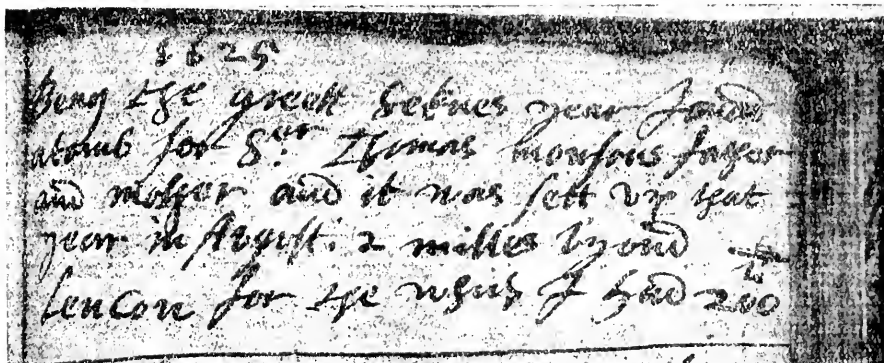 1625
Beng the greett seknes year I mad
atomb for Sur Thomas monsons father
and mother and it was sett vp that
year in Avgust: 2 milles byond
Lencon for the which I had 200 li